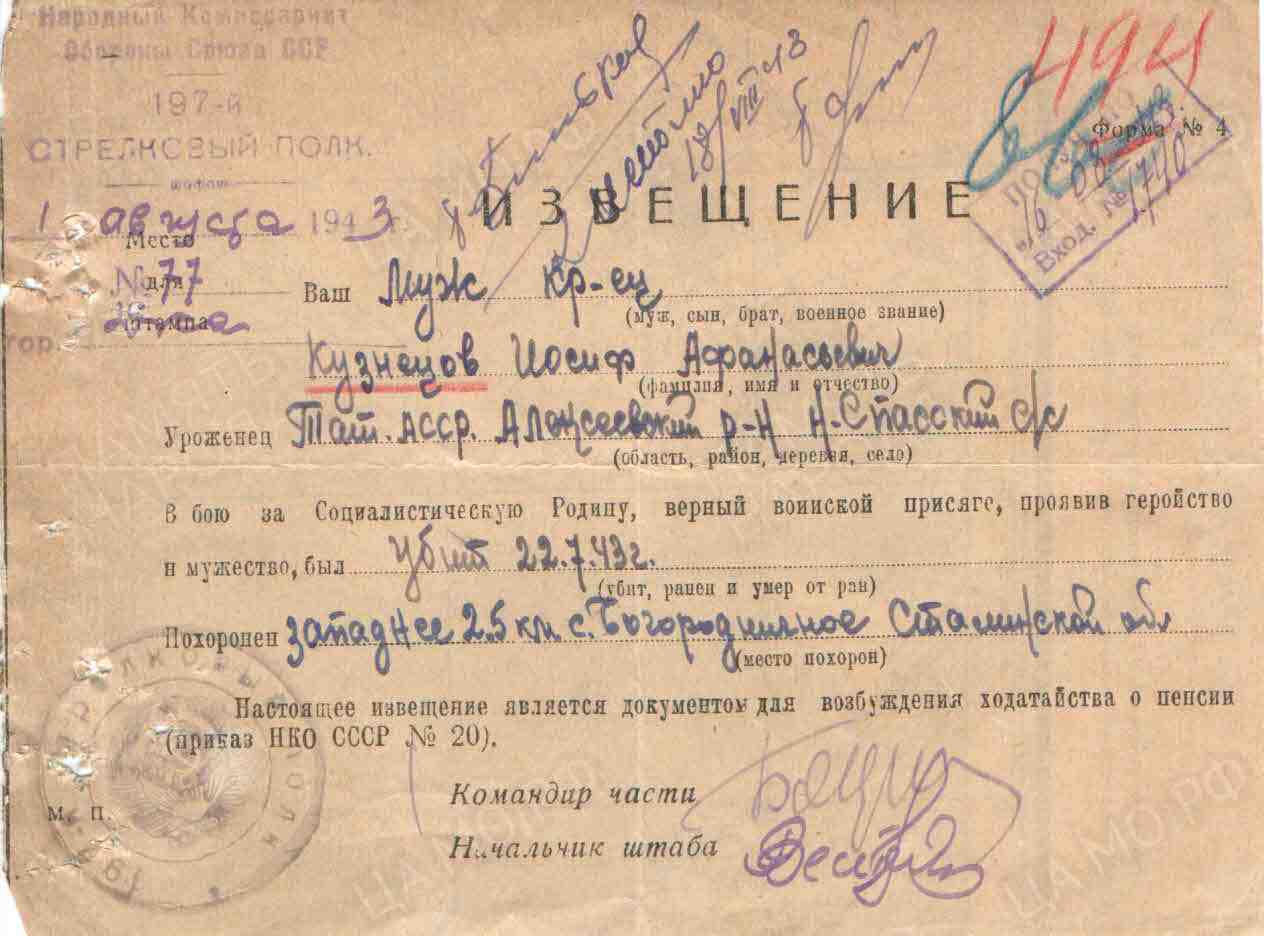 Народный Комиссариат
Обороны Союза ССР
197-й
СТРЕЛКОВЫЙ ПОЛК.
1 августа 1943 г.
Место
№ 77
для
штампа
гор.
494
18/VIII 43
Форма № 4
16 08
Вход. № 1740
ИЗВЕЩЕНИЕ
Ваш муж кр-ец
(муж, сын, брат, военное звание)
Кузнецов Иосиф Афанасьевич
(фамилия, имя и отчество)
Уроженец Тат. АССР. Алексеевский р-н Н-Спасский с/с
(область, район, деревня, село)
В бою за Социалистическую Родину, верный воинской присяге, проявив геройство
и мужество, был убит 22.7.43г.
(убит, ранен и умер от ран)
Похоронен западнее 2.5 км. с. Богородичное Сталинской обл
(место похорон)
Настоящее извещение является документом для возбуждения ходатайства о пенсии
(приказ НКО СССР № 20).
Командир части
М. П.
Начальник штаба
ЦАМО.РФ